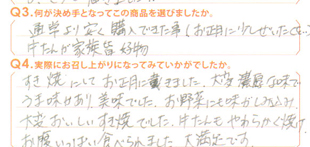 Q3.何が決め手となってこの商品を選びましたか。
通常より安く購入できた事(お正月に少しぜいたくに…)
片たんが家族皆好物
Q4.実際にお召し上がりになってみていかがでしたか。
すき焼にしてお正月に戴きました、大変濃厚な味で
うま味があり美味でした、お野菜にも味がしみ込み
大変おいしいすき焼でした。片たんもやわらかく焼け
お腹いっぱい食べられました 大満足です